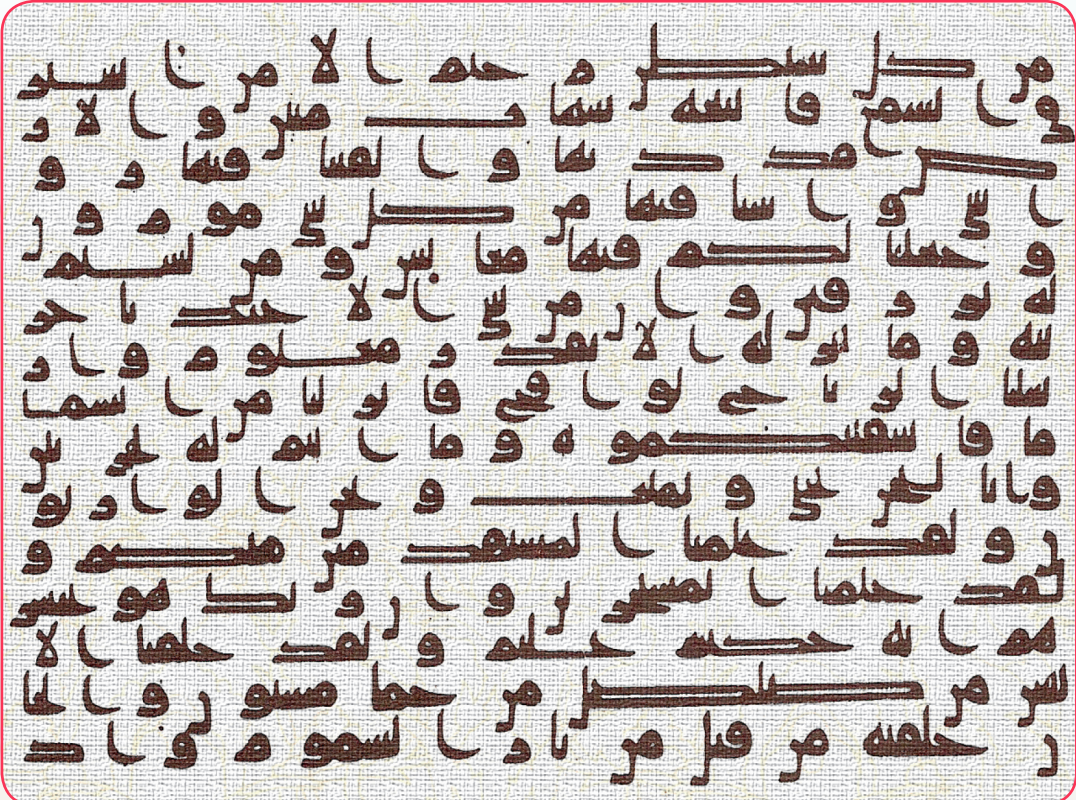 من كل شيطن رجيم الا من استر
ق السمع فاتبعه شهاب مبين والار
ض مددنها والقينا فيها رو
اسي وانبتنا فيها من كل شي موزو
ن وجعلنا لكم فيها معيش ومن لستم
له برزقين وان من شي الا عندنا خز
ئنه وما ننزله الا بقدر معلوم وار
سلنا الريح لوقح فانزلنا من السما
ما فاسقينكموه وما انتم له بخزنين
وانا لنحن نحي ونميت ونحن الورثو
ن ولقد علمنا المستقدمين منكم و
لقد علمنا المستخرين وان ربك هو يحشر
هم انه حكيم عليم ولقد خلقنا الا
نسن من صلصل من حما مسنون والجا
ن خلقنه من قبل من نار السموم واذ